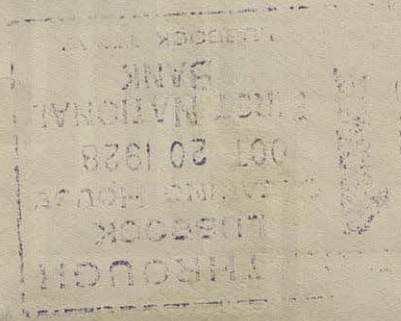 THROUGH
LUBBOCK
CLEARING HOUSE
OCT 20 1928
FIRST NATIONAL
BANK
LUBBOCK